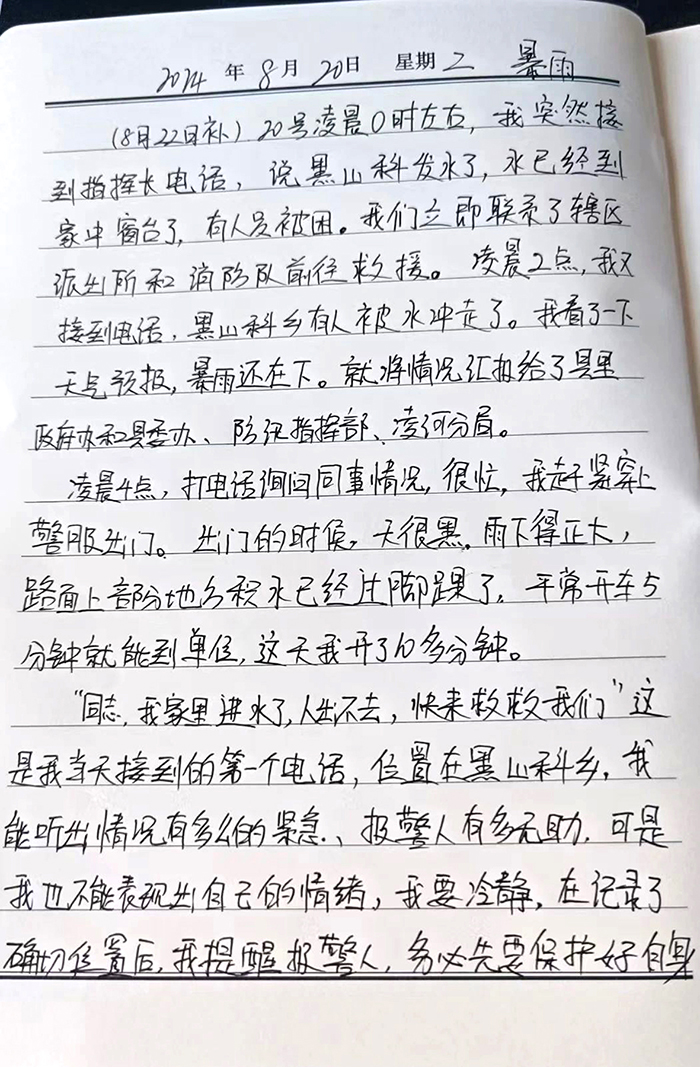 2024 年 8 月 20 日 星期 二 暴雨
(8月22日补) 20号凌晨0时左右，我突然接
到指挥长电话，说黑山科发水了，水已经到
家中窗台了，有人员被困。我们立即联系了辖区
派出所和消防队前往救援。凌晨2点，我又
接到电话，黑山科乡有人被水冲走了。我看了一下
天气预报，暴雨还在下。就将情况汇报给了县里
政府办和县委办、防汛指挥部、凌河分局。
凌晨4点，打电话询问同事情况，很忙，我赶紧穿上
警服出门。出门的时候，天很黑，雨下得正大，
路面上部分地方积水已经过脚踝了，平常开车5
分钟就能到单位，这天我开了10多分钟。
“同志，我家里进水了，人出不去，快来救救我们”这
是我当天接到的第一个电话，位置在黑山科乡，我
能听出情况有多么的紧急、报警人有多无助，可是
我也不能表现出自己的情绪，我要冷静，在记录了
确切位置后，我提醒报警人，务必先要保护好自身